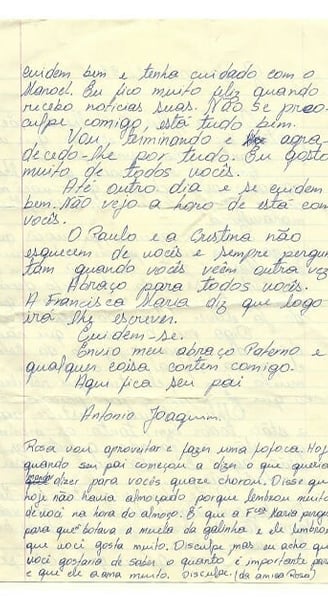 cuidem bem e tenha cuidado com o
Manoel. Eu fico muito feliz quando
recebo notícias suas. Não se preo-
culpe comigo, está tudo bem.
Vou terminando e agra-
decedo-lhe por tudo. Eu gosto
muito de todos vocês.
Até outro dia e se cuidem
bem. Não vejo a hora de está com
vocês.
O Paulo e a Cristina não
esquecem de vocês e sempre pergun
tam quando vocês vêem outra vez
Abraço para todos vocês.
A Francisca Maria diz que logo
irá lhe escrever.
Cuidem-se.
Envio meu abraço Paterno e
qualquer coisa contem comigo.
Aqui fica seu pai
Antonio Joaquim.
Rosa vou aproveitar e fazer uma fofoca. Hoje
quando seu pai começou a dizer o que queria
dizer para vocês quaze chorou. Disse que
hoje não havia almoçado porque lembrou muito
de você na hora do almoço. É que a Fca Maria pergun
para quem botava a muela da galinha e ele lembrou
que você gosta muito. Disculpe mas eu acho que
você gostaria de saber o quanto é importante para
e que ele a ama muito. Disculpe. (da amiga Rosa)